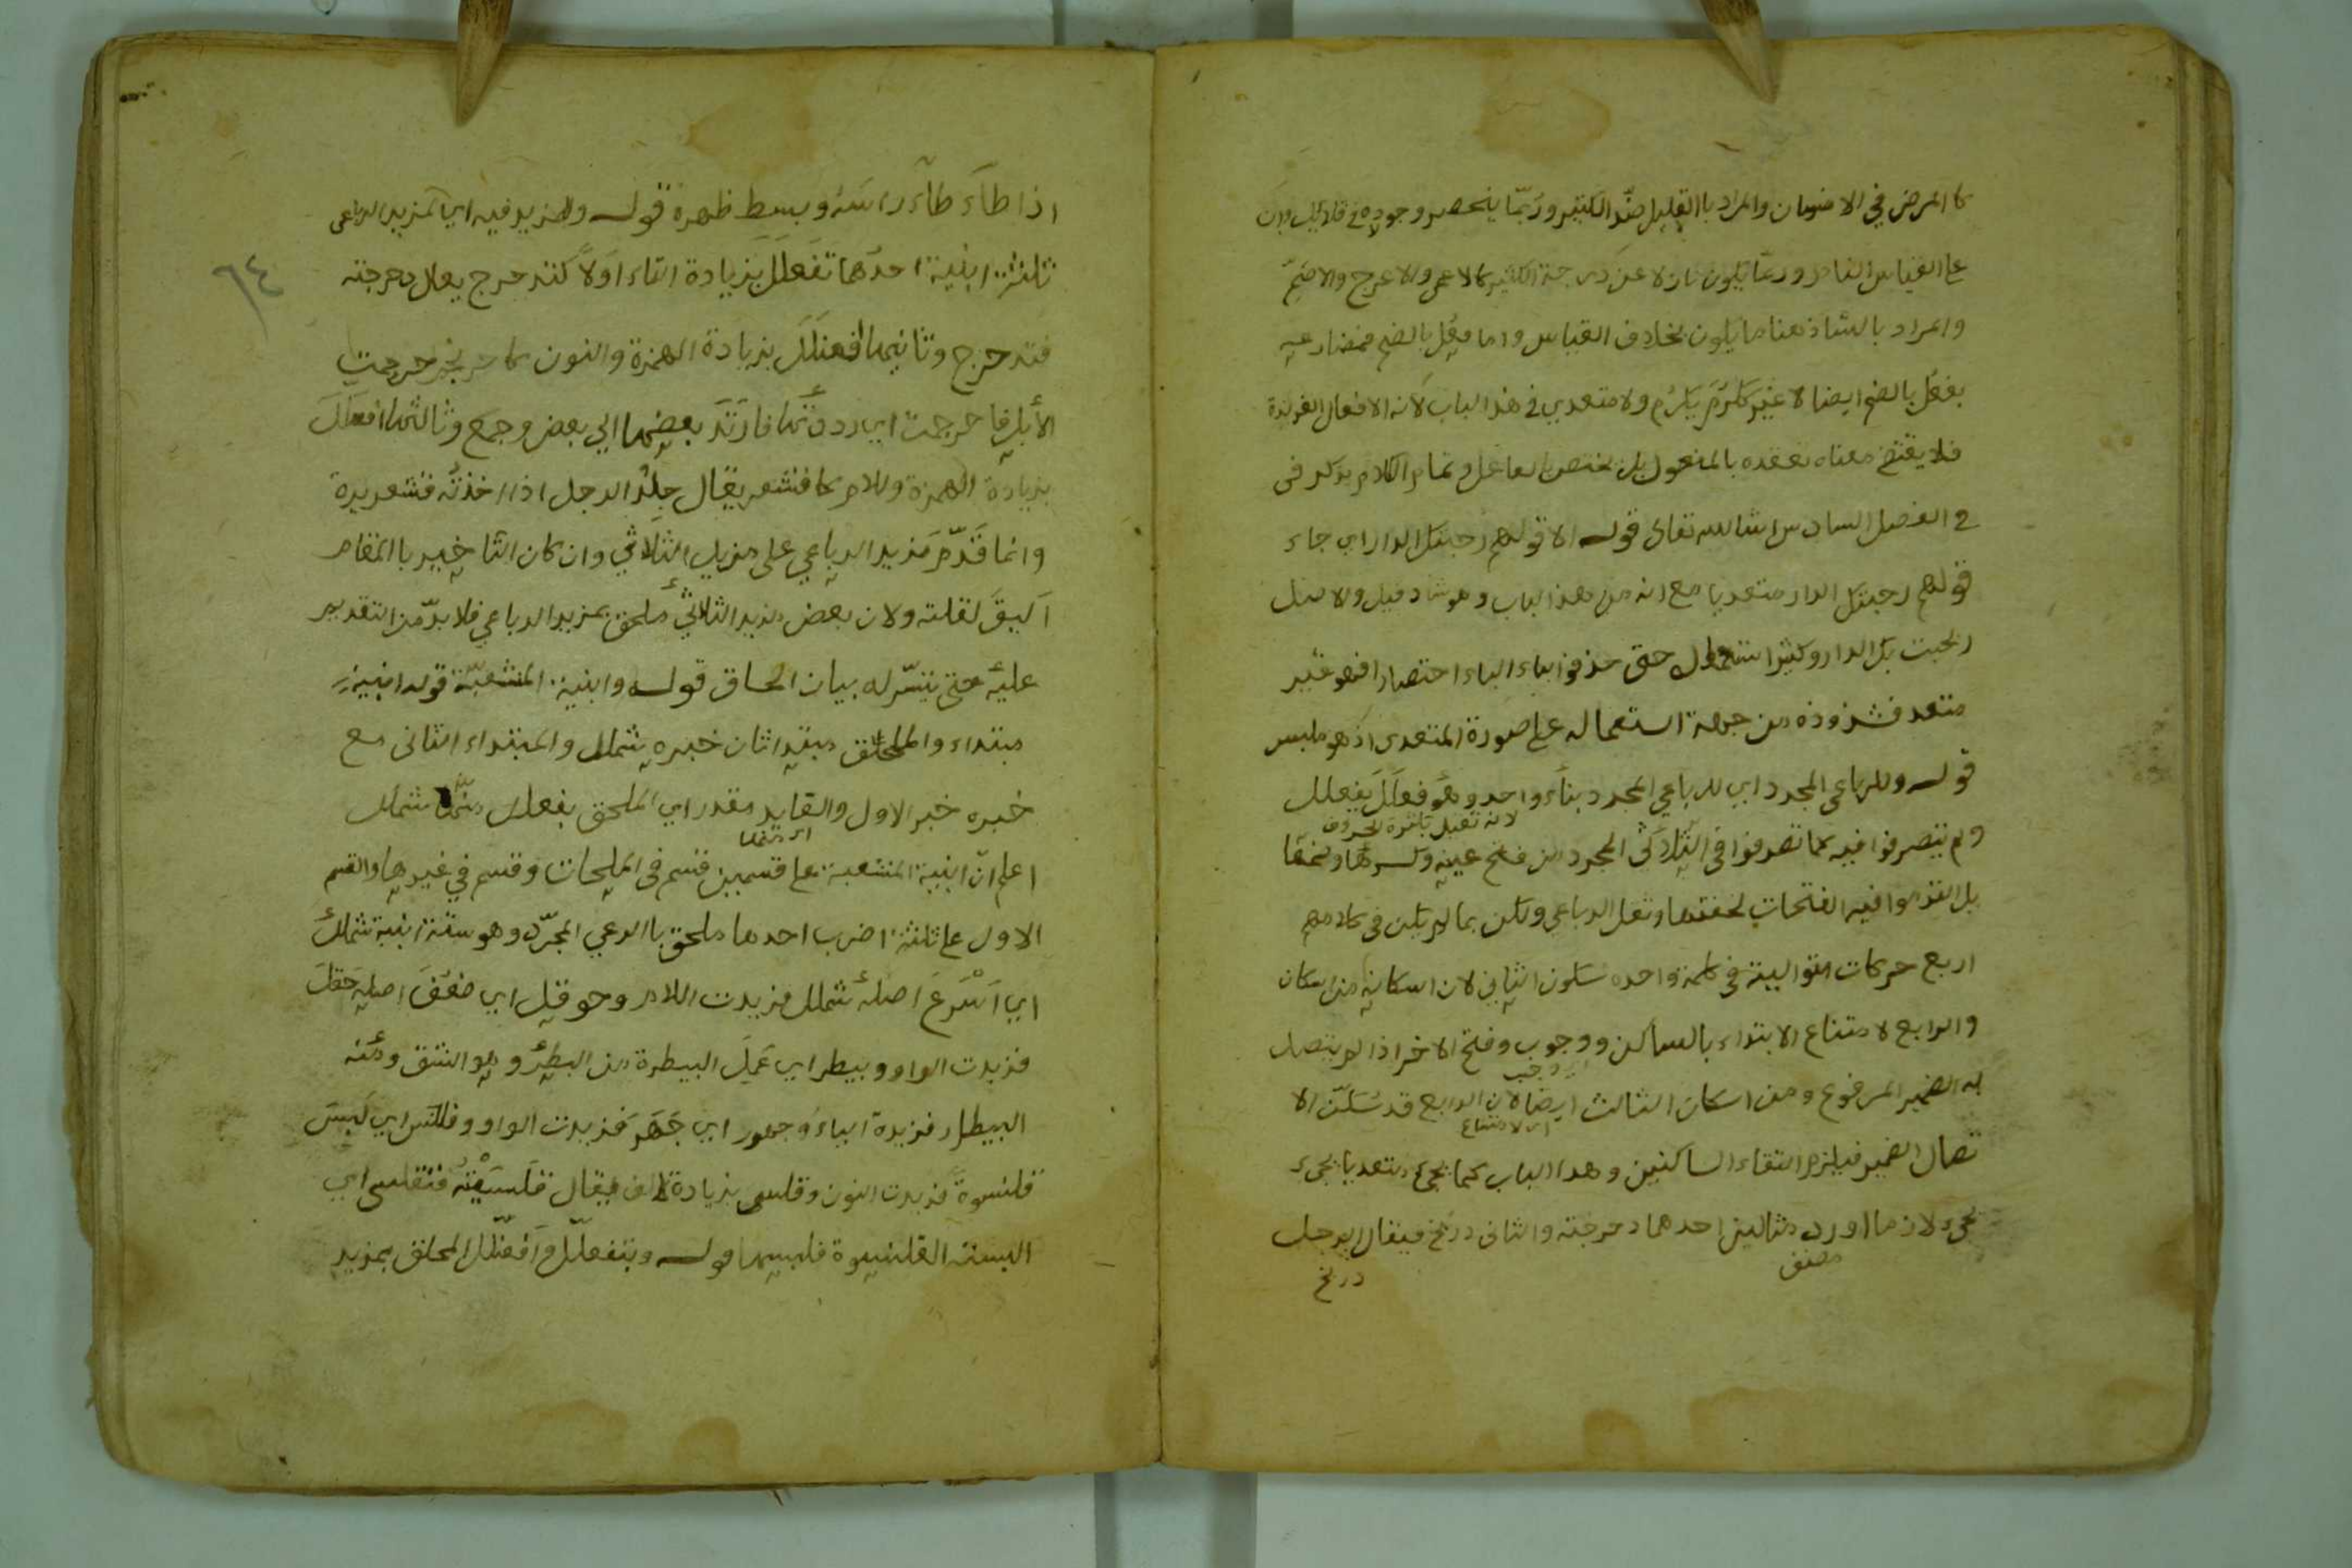 كالمرض في الانسان والمراد باالقليل ضد الكثير وربما ينحصر وجوده في قلائل وان
علي القياس وربما يكون نازلا عن درجة الكثير كالاعمي والاعرج والاصم
والمراد بالشاذ هنا ما يكون بخلاف القياس واما فعُل بالضم فمضارعه
يفعُل بالضم ايضا لا غير ككرُمَ يكرُم ولا متعدي في هذا الباب لانه الافعال الغريزة
فلا يقتضي معناه تعقده بالمفعول بل يختص بالفاعل وتمام الكلام يذكر في
في الفصل السادس انشاالله تعالى قوله الا قولهم رحبتك الدار اي جاء
قولهم رحبتك الدار متعديا مع انه من هذا الباب وهو شاذ قيل والاصل
رحبت بك الدار وكثر استعماله حتى حذفوا الباء اختصارا فهو غير
متعد فشذوذه من جهة استعماله علي صورة المتعدي اذ هو ملبس
قوله وللرباعي المجرد اي للرباعي المجرد بناء واحد وهو فَعلَلَ يفعلل
لانه ثقيل بكثرة الحروف
ولم يتصرفوا فيه كما تصرفوا في الثلاثي المجرد من فتح عينه وكسرها وضمها
بل التزموا فيه الفتحات لخفتها وثقل الرباعي ولكن لما لم يكن في كلامهم
اربع حركات التوالية في كلمة واحدة سكون الثاني لان اسكانه من اسكان
والرابع لامتناع الابتداء بالساكن ووجوب وفتح الاخر اذا لم يتصل
به الضمير المرفوع ومن اسكان الثالث ايضا لان الرابع قد سُكّن الا
اي لامتناع
تصال الضمير فيلزم التقاء الساكنين وهذا الباب كما يجيء متعديا يجيء
يجيء لازما اورد مثالين احدهما دحرجته والثاني دربخ فيقال الرجل
مصنف
دربخ
٦٤
اذا طأطأ راسه وبسط ظهره قوله وللمزيد فيه اي لمزيد الرباعي
ثلثة ابنية احدها تفعلل بزيادة التاء اولا كتدحرج يقال دحرجته
فتدحرج وثانيها افعنلل بزيادة الهمزة والنون كاحرنجم حرجمت
الأبل فاحرنجمت اي رددتها فارتد بعضها الي بعض وجمع وثالثها افعلل
بزيادة الهمزة واللام كاقشعر يقال جلد الرجل اذا اخذته قشعريرة
وانما قدّم مزيد الرباعي على مزيد الثلاثي وان كان التاخير باالمقام
اليقَ لقلته ولان بعض مزيد الثلاثي ملحق بمزيد الرباعي فلا بد من التقدير
عليه حتى يتيسّر له بيان الحاق قوله وابنية المنشعبة قوله ابنية
مبتداء والملحق مبتدا ثان خبره شملل والمبتداء الثاني مع
خبره خبر الاول والعايد مقدر اي الملحق بفعلل منها شملل
اعلم انّ ابنية المنشعبة علي قسمين قسم في الملحقات وقسم في غيرها والقسم
الاول علي ثلثة اضرب احدها ملحق باالرعي المجرّد وهو ستة ابنية شملل
اي اَسْرَعَ اصله شمل فزيدت اللام وحوقل اي ضعف اصله حقل
فزيدت الواو وبيطر اي عَمِلَ البيطرة من البطر وهو الشق ومنه
البيطار فزيدة الياء وجهور اي جَهَرَ فزيدت الواو وقلنس اي لَبِسَ
قلنسوةً فزيدت النون وقلسى بزيادة الف فيقال قلسيته فتقلسى اي
البسته القلنسوة فلبسها قوله وبتفعلل وافعنلل الملحق بمزيد